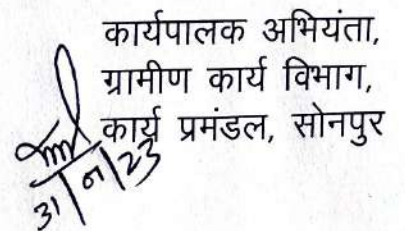 कार्यपालक अभियंता,
ग्रामीण कार्य विभाग,
कार्य प्रमंडल, सोनपुर